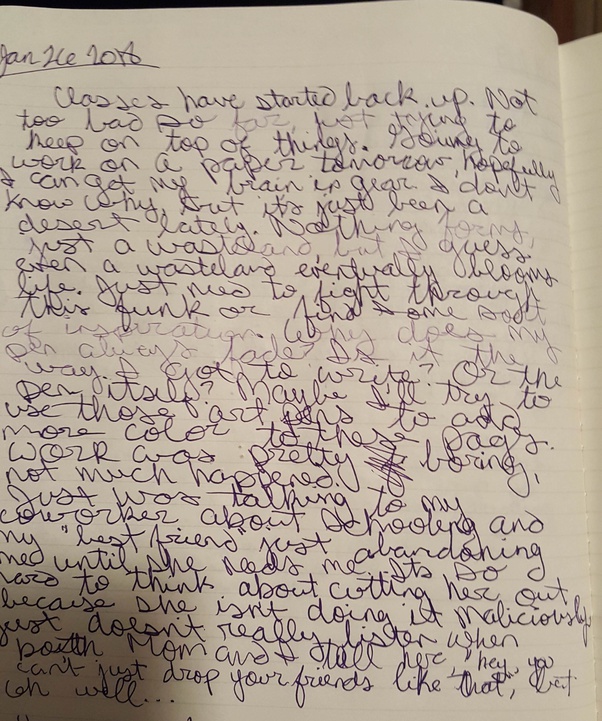 Jan 26 2016
Classes have started back up. Not
too bad so far just trying to
keep on top of things. Going to
work on a paper tomorrow, hopefully
I can get my brain in gear. I don't
know why but it's just been a
desert lately. Nothing forms,
just a wasteland but I guess
even a wasteland eventually blooms
life. Just need to fight through
this funk or find some sort
of inspiration. Why does my
pen always fade? Is it the
way I got to write? Or the
pen itself? Maybe I'll try to
use those art pens to add
more color to these pags.
Work was pretty boring,
not much happened.
Just was talking to my
coworker about schooling and
my "best friend" just abandoning
med until she needs me. Its so
hard to think about cutting her out
because she isn't doing it maliciously
just doesn't really listen when
both Mom and I tell her, "hey, you
can't just drop your friends like that", but
oh well...